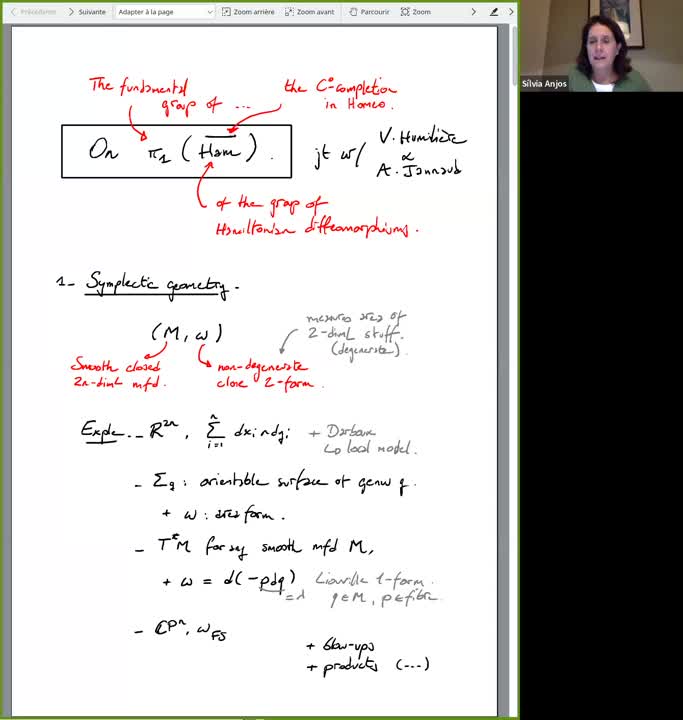 Précédente Suivante Adapter à la page Zoom arrière Zoom avant Parcourir Zoom
Sílvia Anjos
The fundamental group of ...
the C°-completion in Homeo.
On π₁ (H̅a̅m̅) .
jt w/ V. Humilière & A. Jannaud
of the group of Hamiltonian diffeomorphisms.
1- Symplectic geometry.
(M, ω)
measures area of
2-dim'l stuff.
(degenerate).
Smooth closed
2n-dim'l mfd.
non-degenerate
close 2-form.
Exple. - R²ⁿ, Σᵢ₌₁ⁿ dxᵢ∧dyᵢ + Darboux
↳ local model.
- Σg : orientable surface of genus g.
+ ω : area form.
- T*M for any smooth mfd M,
+ ω = d(-pdq) Liouville 1-form.
=λ q∈M, p∈fibre.
- CPⁿ, ω_FS
+ blow-ups
+ products (...)